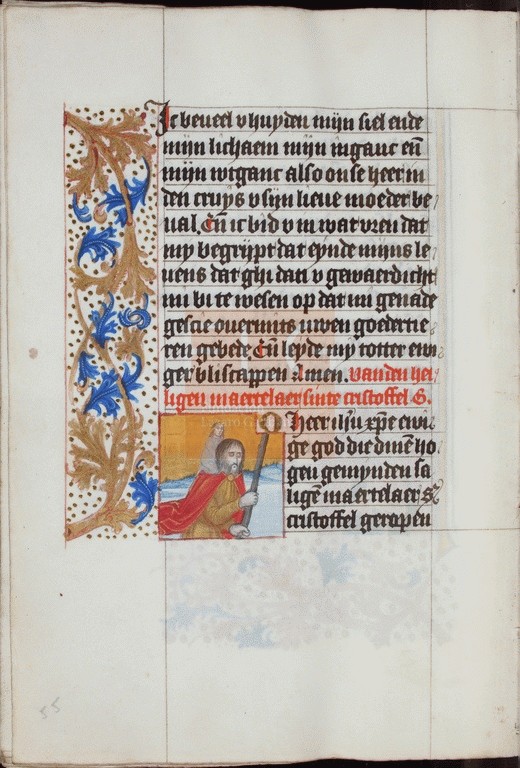 Ic beueel v huyden mijn siel ende
mijn lichaem mijn inganc eñ
mijn wtganc also onse heer in
den cruys v sijn lieue moeder be
ual. Eñ ic bid v in wat vren dat
my begrijpt dat eynde mijns le
uens dat ghi dan v gewaerdicht
mi bi te wesen op dat mi genade
gescie ouermits uwen goedertie
ren gebede Eñ leyde my totter ewi
ger bliscappen Amen. van den hei
ligen maertelaer sinte cristoffel G.
heer ihu xpe ewi
ge god die dinē ho
gen gemynden
ligē maertelaer
cristoffel geropen
55